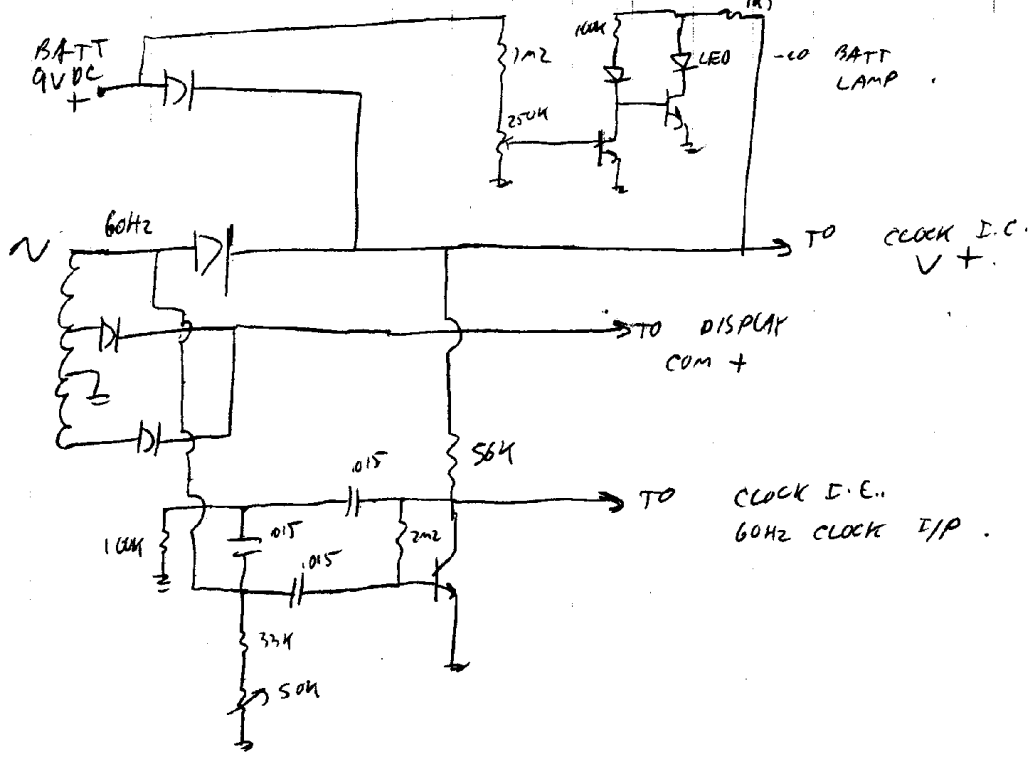 BATT
9VDC
+
1M2
250K
100K
LED
LO BATT
LAMP.
60Hz
TO CLOCK I.C.
V+.
TO DISPLAY
COM +
56K
.015
TO CLOCK I.C..
60Hz CLOCK I/P.
100K
.015
2M2
.015
33K
50K